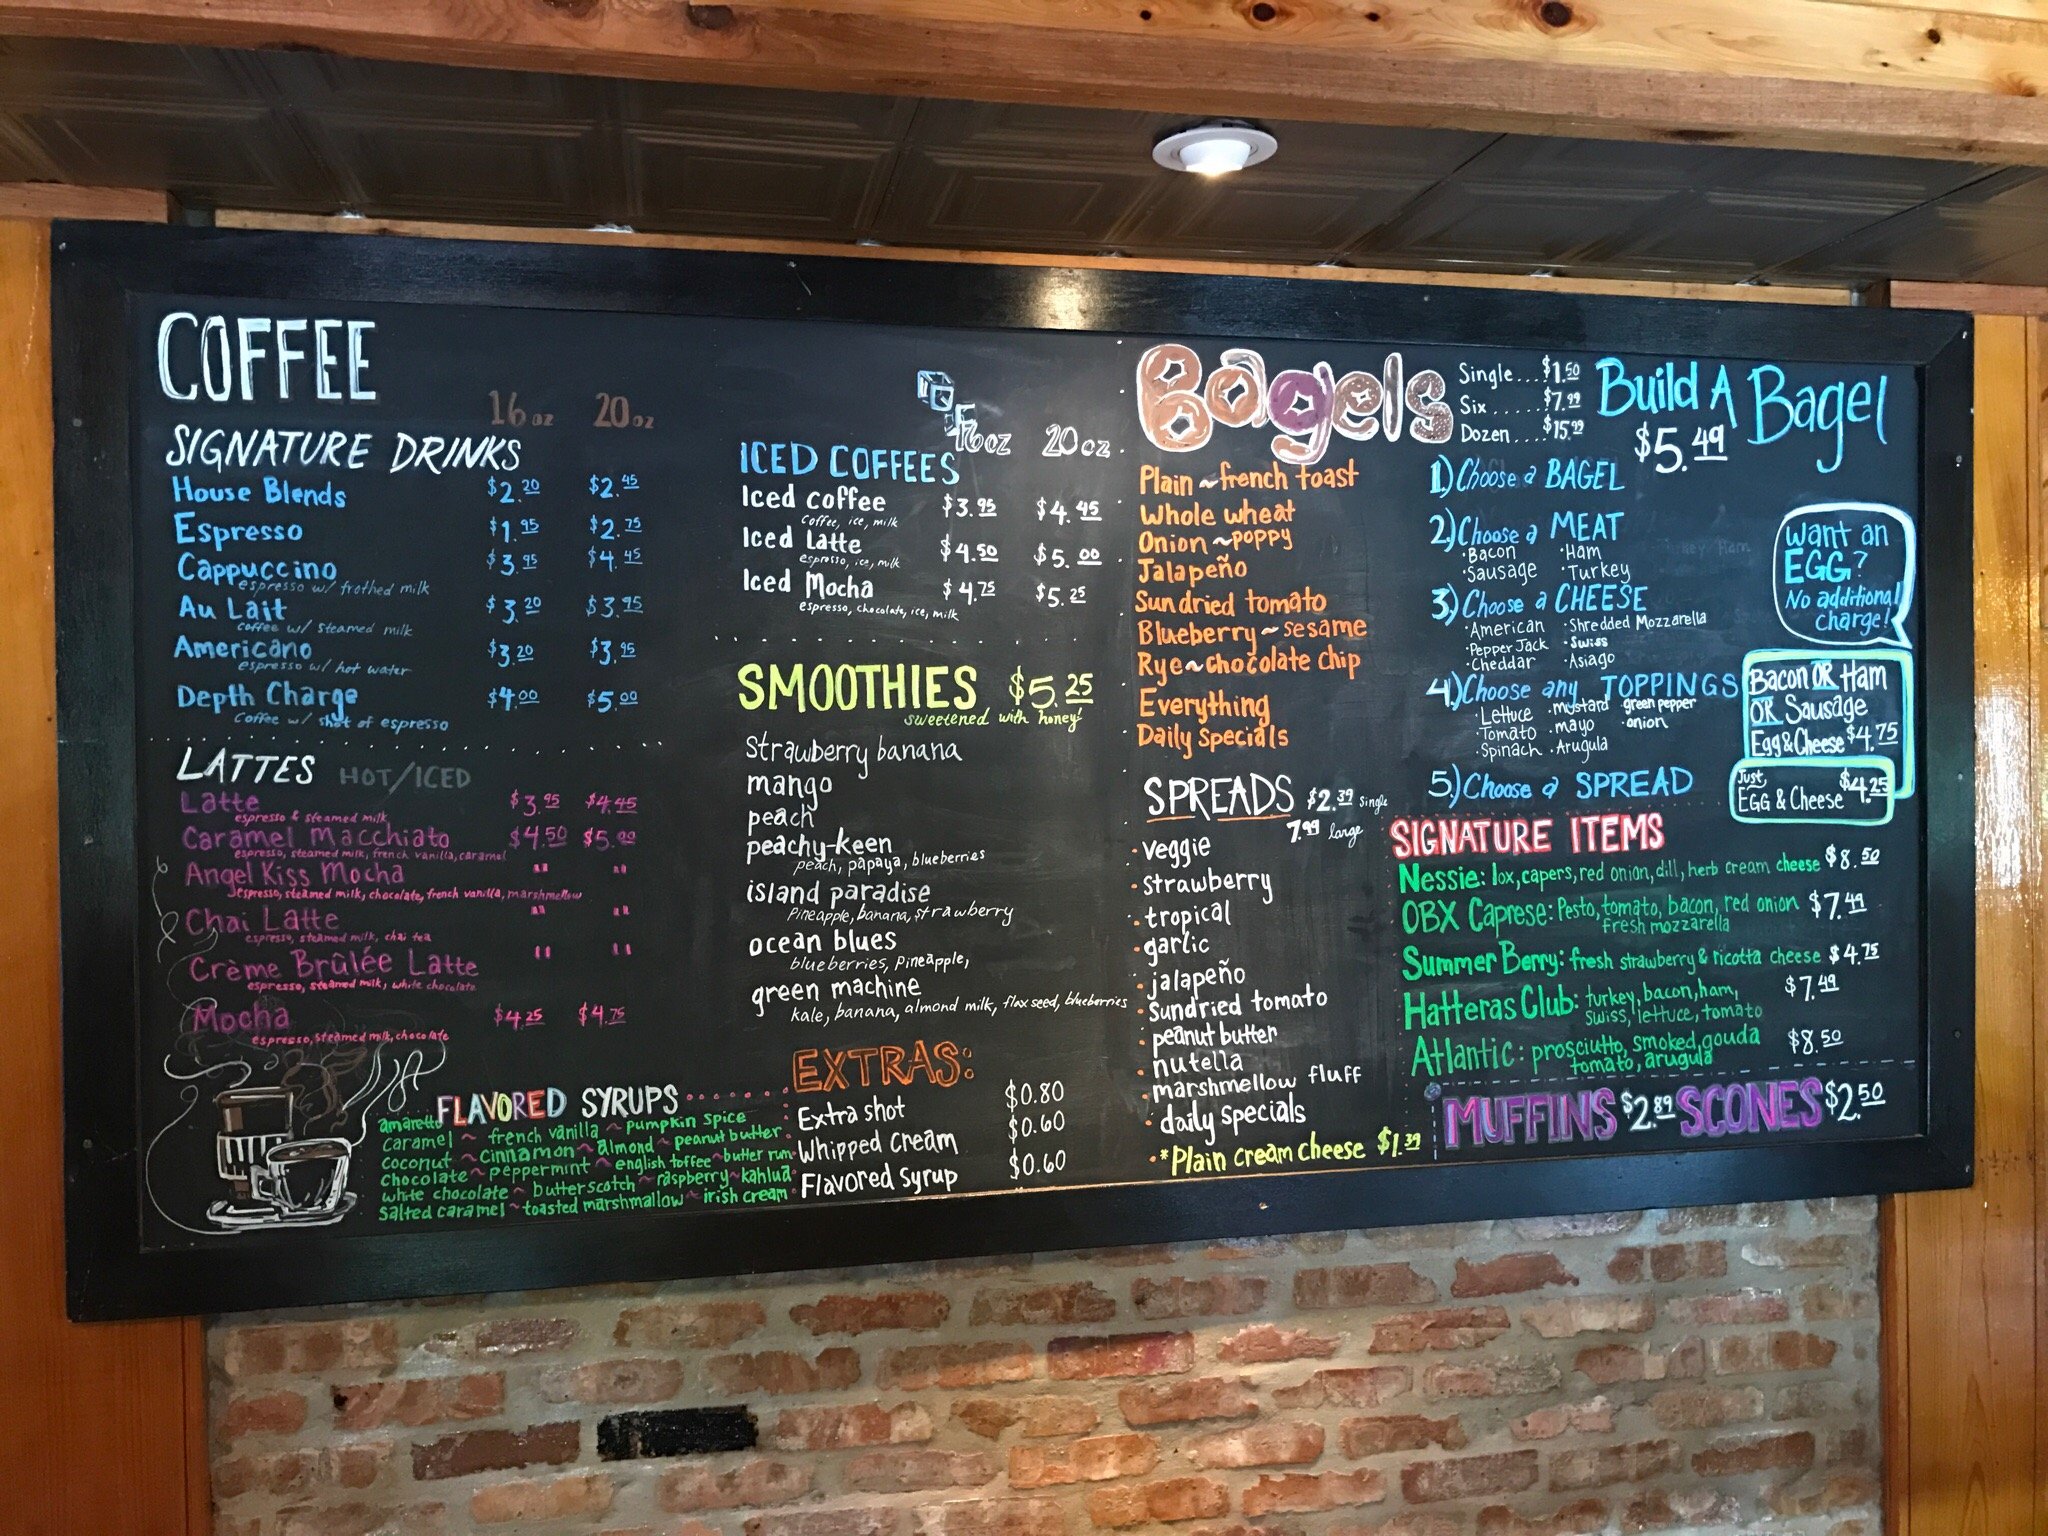 COFFEE
16 oz 20 oz
SIGNATURE DRINKS
House Blends $2.20 $2.45
Espresso $1.95 $2.75
Cappuccino $3.95 $4.45
espresso w/ frothed milk
Au Lait $3.20 $3.95
coffee w/ steamed milk
Americano $3.20 $3.95
espresso w/ hot water
Depth Charge $4.00 $5.00
coffee w/ shot of espresso
LATTES HOT/ICED
Latte $3.95 $4.45
espresso & steamed milk
Caramel Macchiato $4.50 $5.00
espresso, steamed milk, french vanilla, caramel
Angel Kiss Mocha " "
espresso, steamed milk, chocolate, french vanilla, marshmellow
Chai Latte " "
espresso, steamed milk, chai tea
Crème Brûlée Latte " "
espresso, steamed milk, white chocolate
Mocha $4.25 $4.75
espresso, steamed milk, chocolate
FLAVORED SYRUPS
amaretto
caramel ~ french vanilla ~ pumpkin spice
coconut ~ cinnamon ~ almond ~ peanut butter
chocolate ~ peppermint ~ english toffee ~ butter rum
white chocolate ~ butterscotch ~ raspberry ~ kahlua
salted caramel ~ toasted marshmallow ~ irish cream
16oz 20oz
ICED COFFEES
Iced coffee $3.95 $4.45
coffee, ice, milk
Iced Latte $4.50 $5.00
espresso, ice, milk
Iced Mocha $4.75 $5.25
espresso, chocolate, ice, milk
SMOOTHIES $5.25
sweetened with honey!
strawberry banana
mango
peach
peachy-keen
peach, papaya, blueberries
island paradise
Pineapple, banana, strawberry
ocean blues
blueberries, Pineapple,
green machine
kale, banana, almond milk, flaxseed, blueberries
EXTRAS:
Extra shot $0.80
Whipped Cream $0.60
Flavored Syrup $0.60
Bagels
Single...$1.50
Six.....$7.99
Dozen....$15.99
Plain ~ french toast
Whole wheat
Onion ~ poppy
Jalapeño
Sundried tomato
Blueberry ~ sesame
Rye ~ chocolate chip
Everything
Daily Specials
SPREADS $2.39 single
7.99 large
veggie
· strawberry
· tropical
· garlic
· jalapeño
· sundried tomato
· peanut butter
· nutella
· marshmellow fluff
· daily specials
· *Plain cream cheese $1.39
Build A Bagel
$5.49
1.) Choose a BAGEL
2.) Choose a MEAT
· Bacon · Ham
· Sausage · Turkey
3.) Choose a CHEESE
· American · Shredded Mozzarella
· Pepper Jack · Swiss
· Cheddar · Asiago
4.) Choose any TOPPINGS
· Lettuce · mustard · green pepper
· Tomato · mayo · onion
· Spinach · Arugula
5.) Choose a SPREAD
Want an
EGG?
No additional
charge!
Bacon OR Ham
OR Sausage
Egg & Cheese $4.75
Just,
EGG & Cheese $4.25
SIGNATURE ITEMS
Nessie: lox, capers, red onion, dill, herb cream cheese $8.50
OBX Caprese: Pesto, tomato, bacon, red onion $7.49
fresh mozzarella
Summer Berry: fresh strawberry & ricotta cheese $4.75
Hatteras Club: turkey, bacon, ham, $7.49
swiss, lettuce, tomato
Atlantic: prosciutto, smoked gouda $8.50
tomato, arugula
MUFFINS $2.89 SCONES $2.50